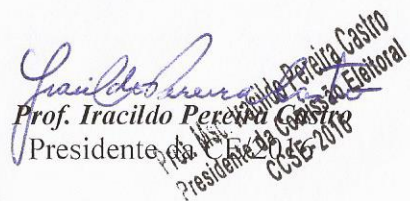 Iracildo Pereira Castro
Prof. Iracildo Pereira Castro
Presidente da CE/2016
Prof. MSc. Iracildo Pereira Castro
Presidente da Comissão Eleitoral
CCSE-2016